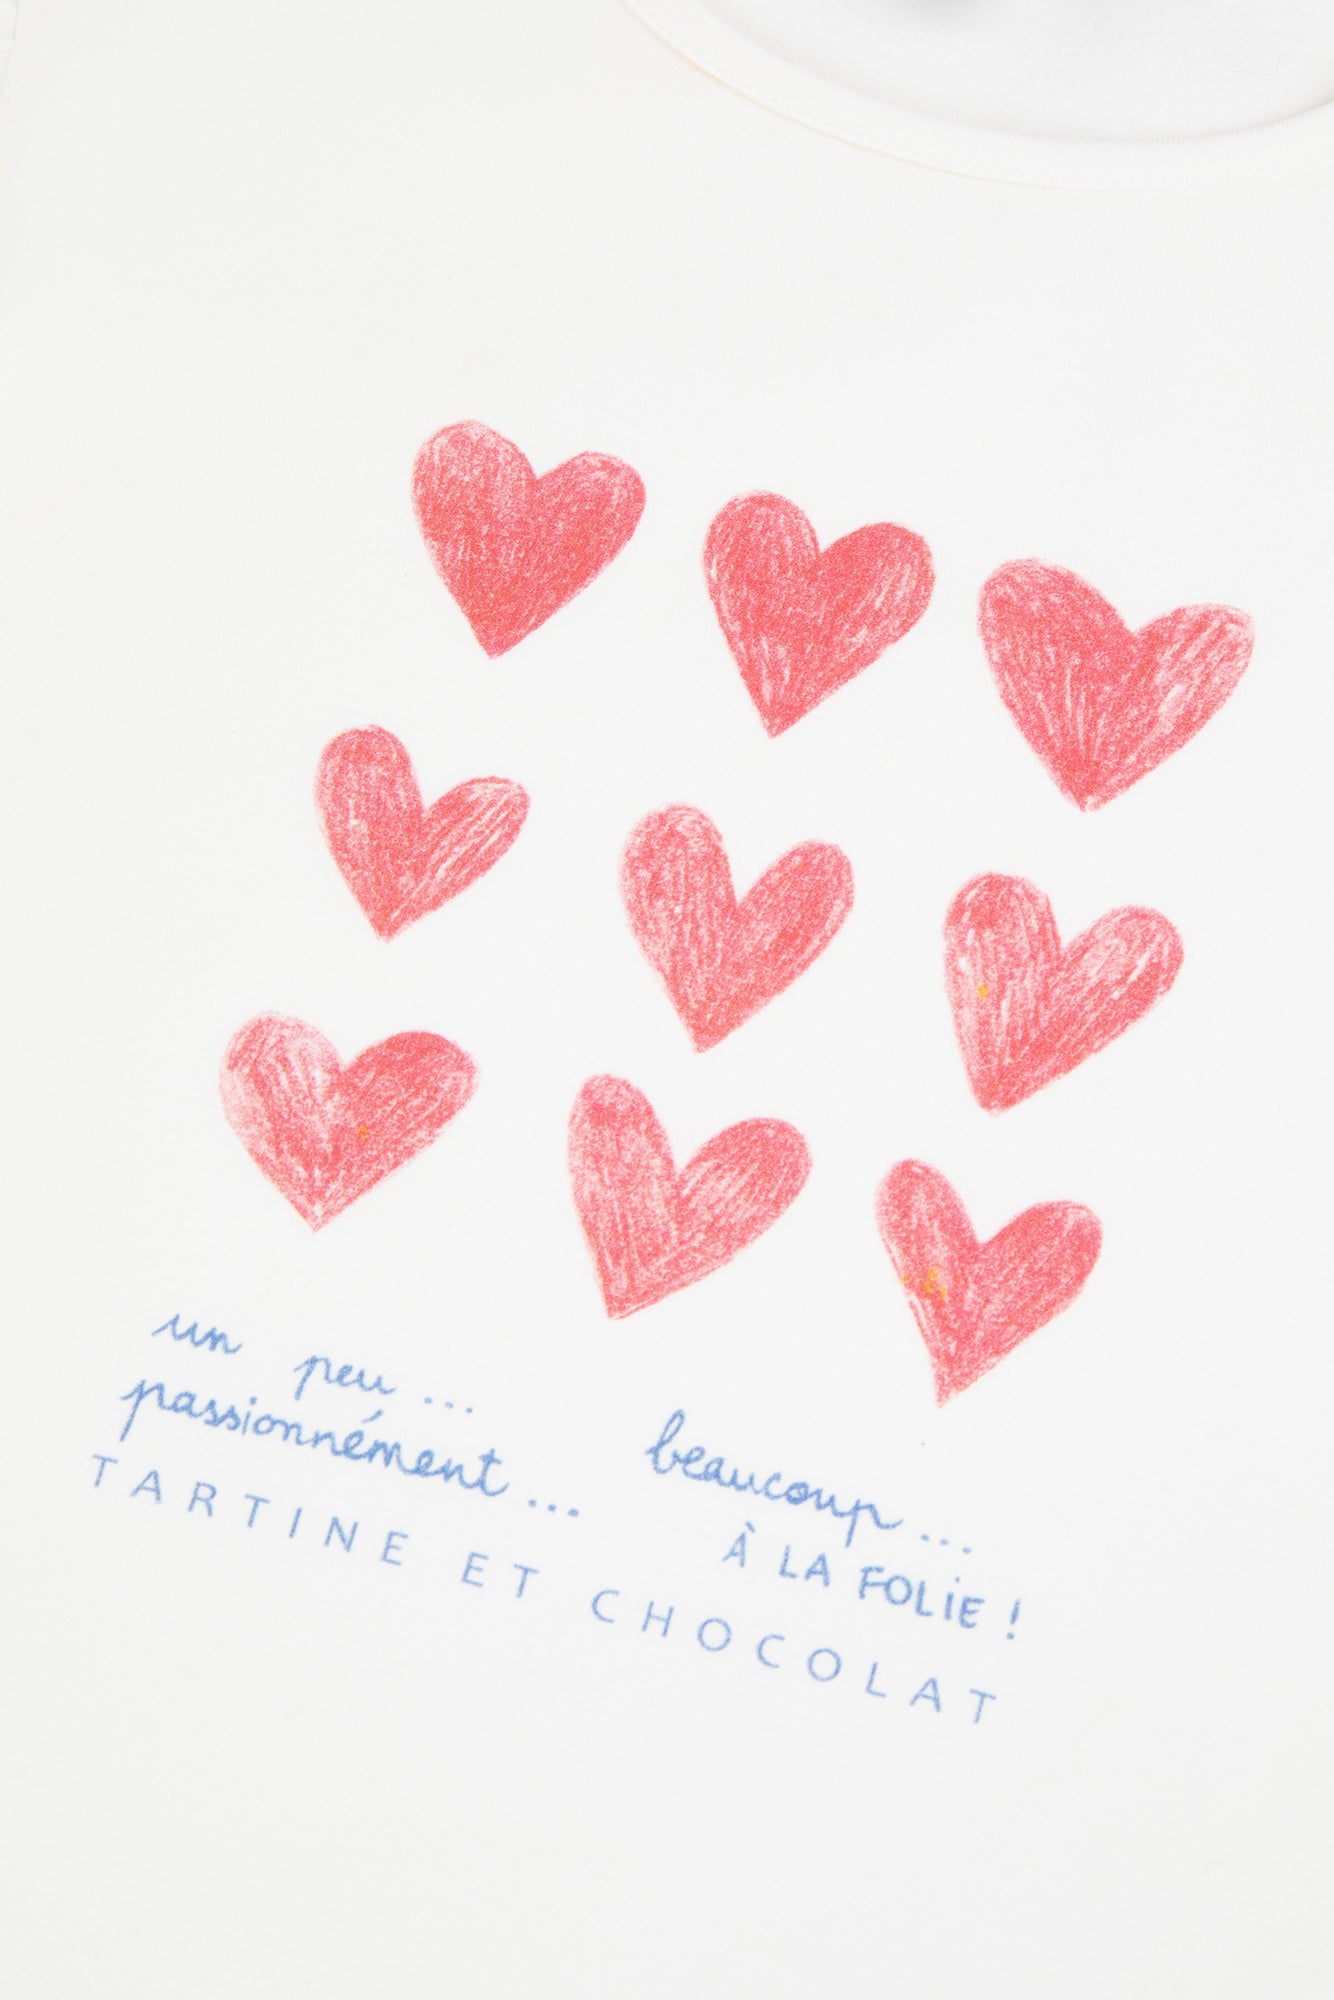 un peu ... beaucoup ...
passionnément ... À LA FOLiE !
TARTINE ET CHOCOLAT